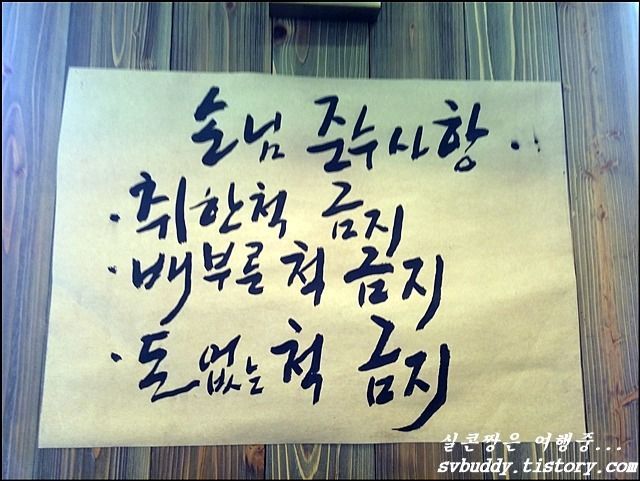 손님 준수사항..
· 취한척 금지
· 배부를 척 금지
· 돈 없는 척 금지
실콘짱은 여행중...
svbuddy.tistory.com